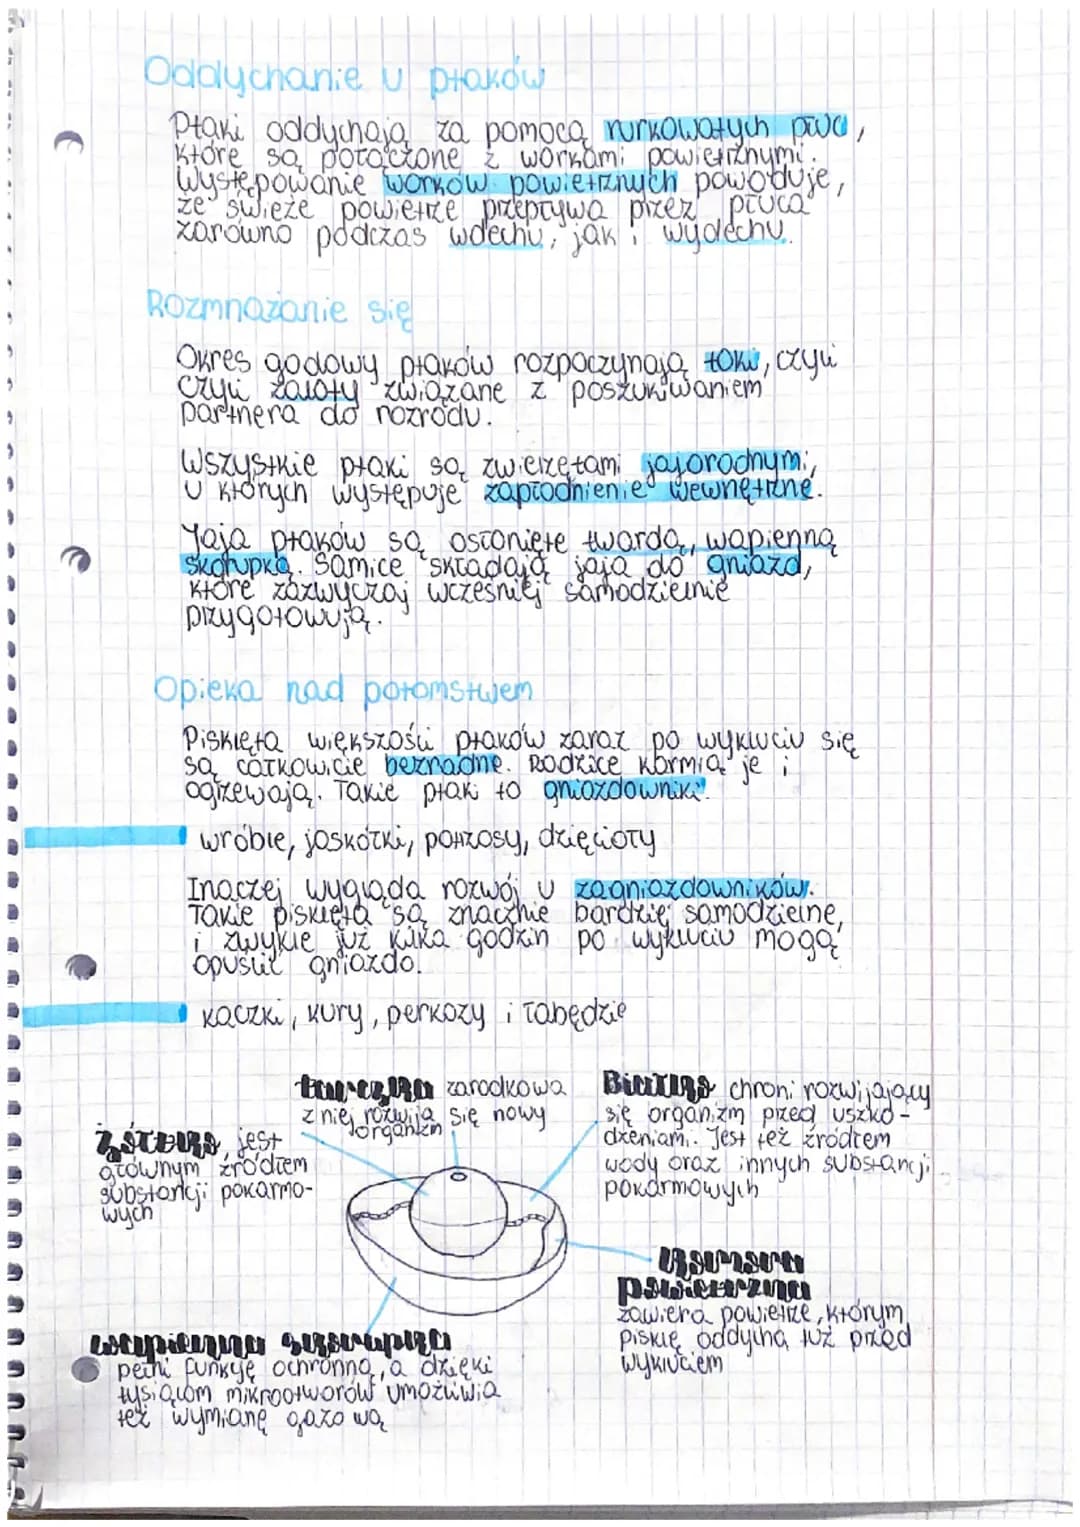 Oddychanie u ptaków
Ptaki oddychają za pomocą rurkowatych płuc,
które są połączone z workami powietrznymi.
Występowanie worków powietrznych powoduje,
że świeże powietrze przepływa przez płuca
zarówno podczas wdechu, jak i wydechu.
Rozmnażanie się
Okres godowy ptaków rozpoczynają toki, czyli
czyli zaloty związane z poszukiwaniem
partnera do rozrodu.
Wszystkie ptaki są zwierzętami jajorodnymi,
u których występuje zapłodnienie wewnętrzne.
Jaja ptaków są osłonięte twardą, wapienną
skorupką. Samice składają jaja do gniazd,
które zazwyczaj wcześniej samodzielnie
przygotowują.
Opieka nad potomstwem
Pisklęta większości ptaków zaraz po wykluciu się
są całkowicie bezradne. Rodzice karmią je i
ogrzewają. Takie ptaki to gniazdowniki.
wróble, jaskółki, pomzosy, dzięcioły
Inaczej wygląda rozwój u zagniazdowników.
Takie pisklęta są znacznie bardziej samodzielne,
i zwykle już kilka godzin po wykluciu mogą
opuścić gniazdo.
kaczki, kury, perkozy i łabędzie
tarczka zarodkowa
z niej rozwija się nowy
organizm
Białko chroni rozwijający
się organizm przed uszko-
dzeniami. Jest też źródłem
wody oraz innych substancji
pokarmowych
żółtko, jest
głównym źródłem
substancji pokarmo-
wych
komora
powietrzna
zawiera powietrze, którym
pisklę oddycha tuż przed
wykluciem
wapienna skorupka
pełni funkję ochronną, a dzięki
tysiącom mikrootworów umożliwia
też wymianę gazową